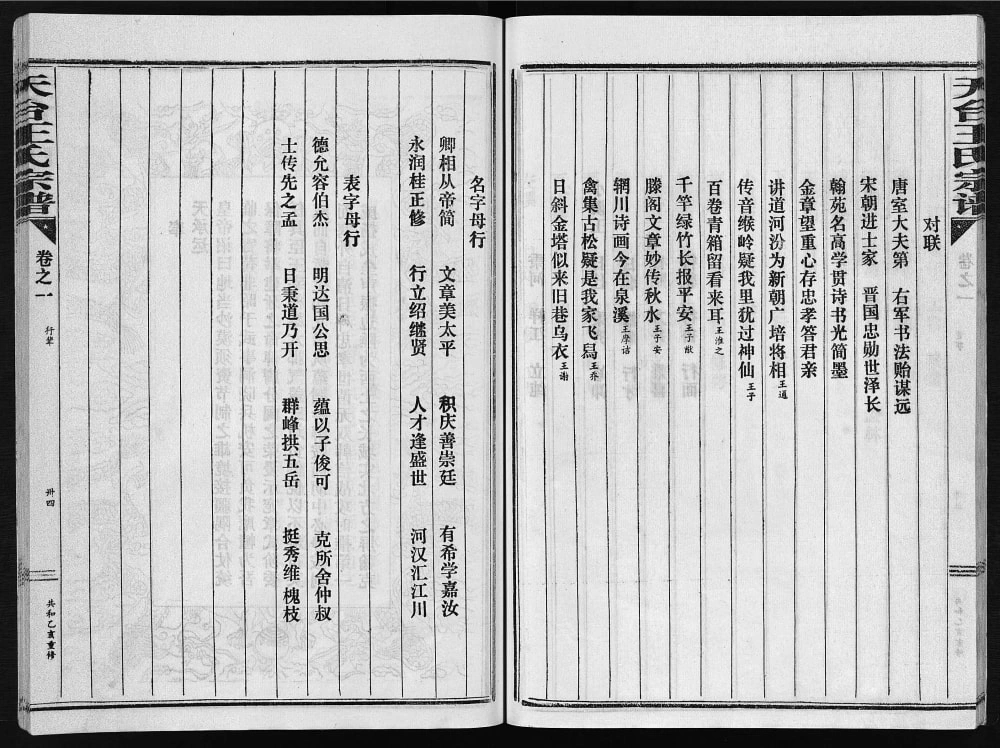 天台王氏宗谱
对联
唐室大夫第 右军书法贻谋远
宋朝进士家 晋国忠勋世泽长
翰苑名高学贯诗书光简墨
金章望重心存忠孝答君亲
讲道河汾为新朝广培将相 王通
传音缑岭疑我里犹过神仙 王子
百卷青箱留看来耳 王淮之
千竿绿竹长报平安 王子猷
滕阁文章妙传秋水 王子安
辋川诗画今在泉溪 王摩诘
禽集古松疑是我家飞舄 王乔
日斜金塔似来旧巷乌衣 王谢
名字母行
卿相从帝简 文章美太平 积庆善崇廷 有希学嘉汝
永润桂正修 行立绍继贤 人才逢盛世 河汉汇江川
表字母行
德允容伯杰 明达国公思 蕴以子俊可 克所舍仲叔
士传先之孟 日秉道乃开 群峰拱五岳 挺秀维槐枝
天台王氏宗谱
卷之一
行辈
卅四
共和乙亥重修